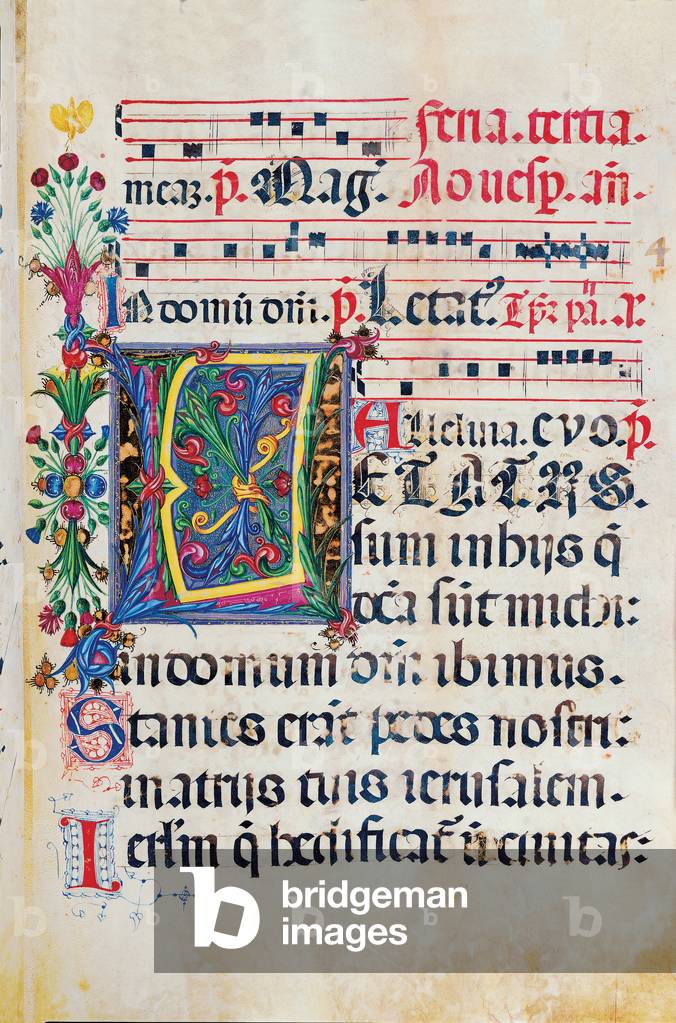 feria. tertia.
meaz. p̃. Mag̃. Ad uesp̃. añ.
In domũ dñi. p̃. Letat⁹. Tp̃r pã. a.
Alleluia. evo. p̃.
LETATUS.
sum in hijs q̃
dc̃a sũt michi:
in domum dñi ibimus.
Stantes erãt pedes nostri:
in atrijs tuis ierusalem.
Ierlm̃ q̃ hedificat̃ ũt ciuitas:
4
bridgeman
images